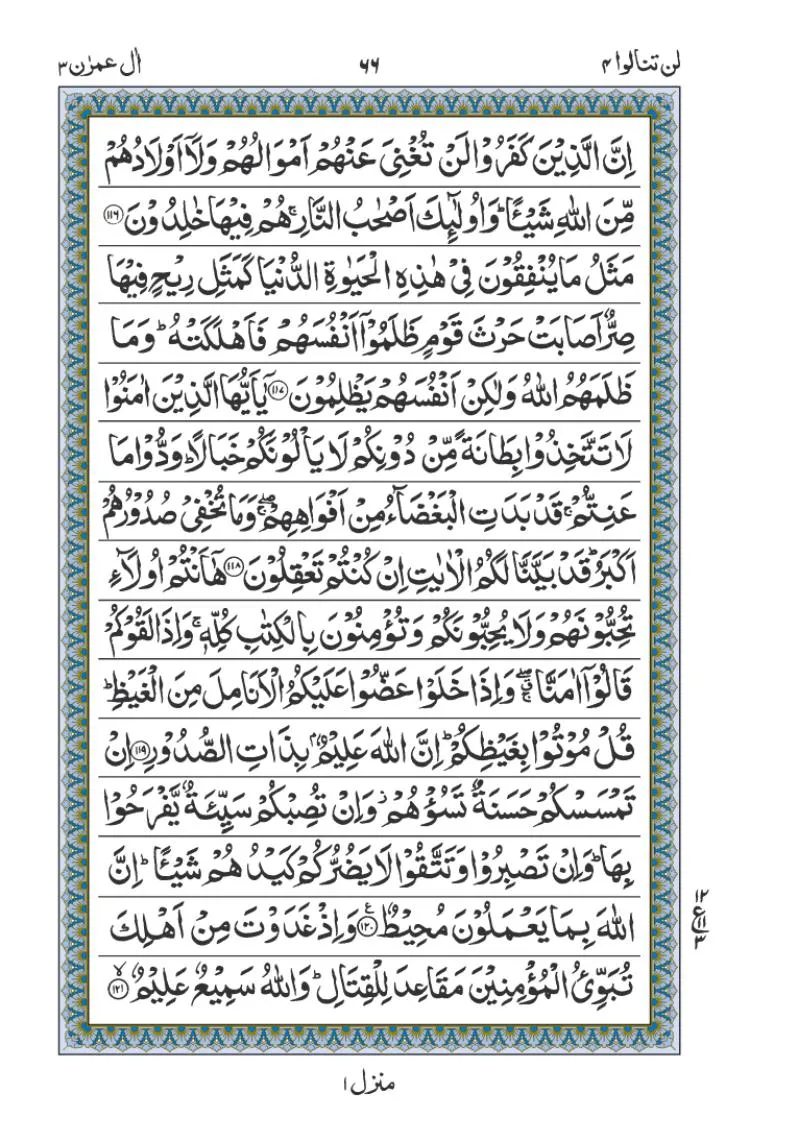 لن تنالوا ۴
۶۶
اٰل عمرٰن ۳
اِنَّ الَّذِيْنَ كَفَرُوْا لَنْ تُغْنِيَ عَنْهُمْ اَمْوَالُهُمْ وَلَاۤ اَوْلَادُهُمْ
مِّنَ اللّٰهِ شَيْـًٔا ؕ وَاُولٰٓئِكَ اَصْحٰبُ النَّارِ ۚ هُمْ فِيْهَا خٰلِدُوْنَ ﴿۱۱۶﴾
مَثَلُ مَا يُنْفِقُوْنَ فِيْ هٰذِهِ الْحَيٰوةِ الدُّنْيَا كَمَثَلِ رِيْحٍ فِيْهَا
صِرٌّ اَصَابَتْ حَرْثَ قَوْمٍ ظَلَمُوْۤا اَنْفُسَهُمْ فَاَهْلَكَتْهُ ؕ وَمَا
ظَلَمَهُمُ اللّٰهُ وَلٰكِنْ اَنْفُسَهُمْ يَظْلِمُوْنَ ﴿۱۱۷﴾ يٰۤاَيُّهَا الَّذِيْنَ اٰمَنُوْا
لَا تَتَّخِذُوْا بِطَانَةً مِّنْ دُوْنِكُمْ لَا يَاْلُوْنَكُمْ خَبَالًا ؕ وَدُّوْا مَا
عَنِتُّمْ ۚ قَدْ بَدَتِ الْبَغْضَآءُ مِنْ اَفْوَاهِهِمْ ۖۚ وَمَا تُخْفِيْ صُدُوْرُهُمْ
اَكْبَرُ ؕ قَدْ بَيَّنَّا لَكُمُ الْاٰيٰتِ اِنْ كُنْتُمْ تَعْقِلُوْنَ ﴿۱۱۸﴾ هٰۤاَنْتُمْ اُولَآءِ
تُحِبُّوْنَهُمْ وَلَا يُحِبُّوْنَكُمْ وَتُؤْمِنُوْنَ بِالْكِتٰبِ كُلِّهٖ ۚ وَاِذَا لَقُوْكُمْ
قَالُوْۤا اٰمَنَّا ۖۚ وَاِذَا خَلَوْا عَضُّوْا عَلَيْكُمُ الْاَنَامِلَ مِنَ الْغَيْظِ ؕ
قُلْ مُوْتُوْا بِغَيْظِكُمْ ؕ اِنَّ اللّٰهَ عَلِيْمٌۢ بِذَاتِ الصُّدُوْرِ ﴿۱۱۹﴾ اِنْ
تَمْسَسْكُمْ حَسَنَةٌ تَسُؤْهُمْ ؗ وَاِنْ تُصِبْكُمْ سَيِّئَةٌ يَّفْرَحُوْا
بِهَا ؕ وَاِنْ تَصْبِرُوْا وَتَتَّقُوْا لَا يَضُرُّكُمْ كَيْدُهُمْ شَيْـًٔا ؕ اِنَّ
اللّٰهَ بِمَا يَعْمَلُوْنَ مُحِيْطٌ ﴿۱۲۰﴾ ع وَاِذْ غَدَوْتَ مِنْ اَهْلِكَ
تُبَوِّئُ الْمُؤْمِنِيْنَ مَقَاعِدَ لِلْقِتَالِ ؕ وَاللّٰهُ سَمِيْعٌ عَلِيْمٌ ۙ ﴿۱۲۱﴾
۱۲
ع ۱۱
۳
منزل ۱